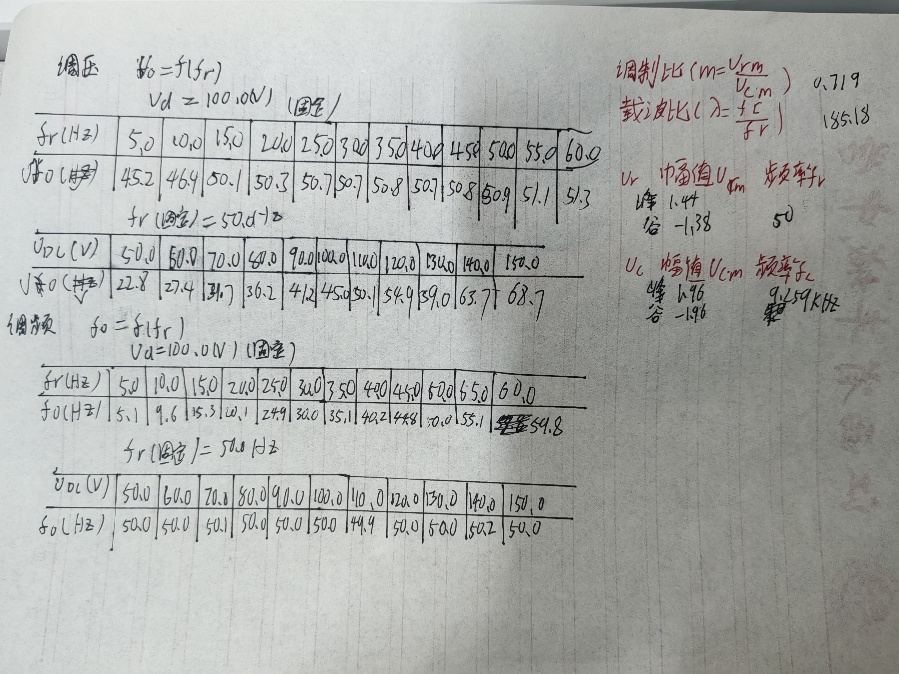 调压 U₀=f(fr)
Ud = 100.0(V) (固定)
fr(Hz) 5.0 10.0 15.0 20.0 25.0 30.0 35.0 40.0 45.0 50.0 55.0 60.0
U₀ 45.2 46.9 50.1 50.3 50.7 50.7 50.8 50.7 50.8 50.9 51.1 51.3
fr(固定)=50.0Hz
UDC(V) 50.0 60.0 70.0 80.0 90.0 100.0 110.0 120.0 130.0 140.0 150.0
U₀ 22.8 27.4 31.7 36.2 41.2 45.0 50.1 54.9 59.0 63.7 68.7
调频 f₀=f(fr)
Ud=100.0(V) (固定)
fr(Hz) 5.0 10.0 15.0 20.0 25.0 30.0 35.0 40.0 45.0 50.0 55.0 60.0
f₀(Hz) 5.1 9.6 15.3 20.1 24.9 30.0 35.1 40.2 44.8 50.0 55.1 59.8
fr(固定)=50.0Hz
UDC(V) 50.0 60.0 70.0 80.0 90.0 100.0 110.0 120.0 130.0 140.0 150.0
f₀(Hz) 50.0 50.0 50.1 50.0 50.0 50.0 49.9 50.0 50.0 50.2 50.0
调制比(m=Urm/Ucm) 0.719
载波比(λ=fc/fr) 185.18
Ur 幅值Urm 频率fr
峰 1.44
谷 -1.38 50
Uc 幅值Ucm 频率fc
峰 1.96 9.259KHz
谷 -1.96